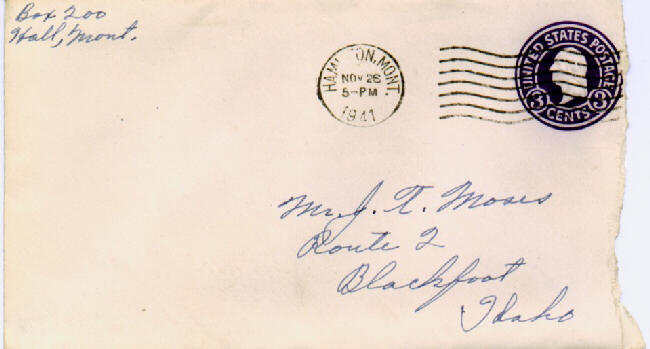 Box 200
Hall, Mont.
HAMILTON, MONT.
NOV 26
5-PM
1941
UNITED STATES POSTAGE
3 CENTS 3
Mr. J. T. Moses
Route 2
Blackfoot
Idaho